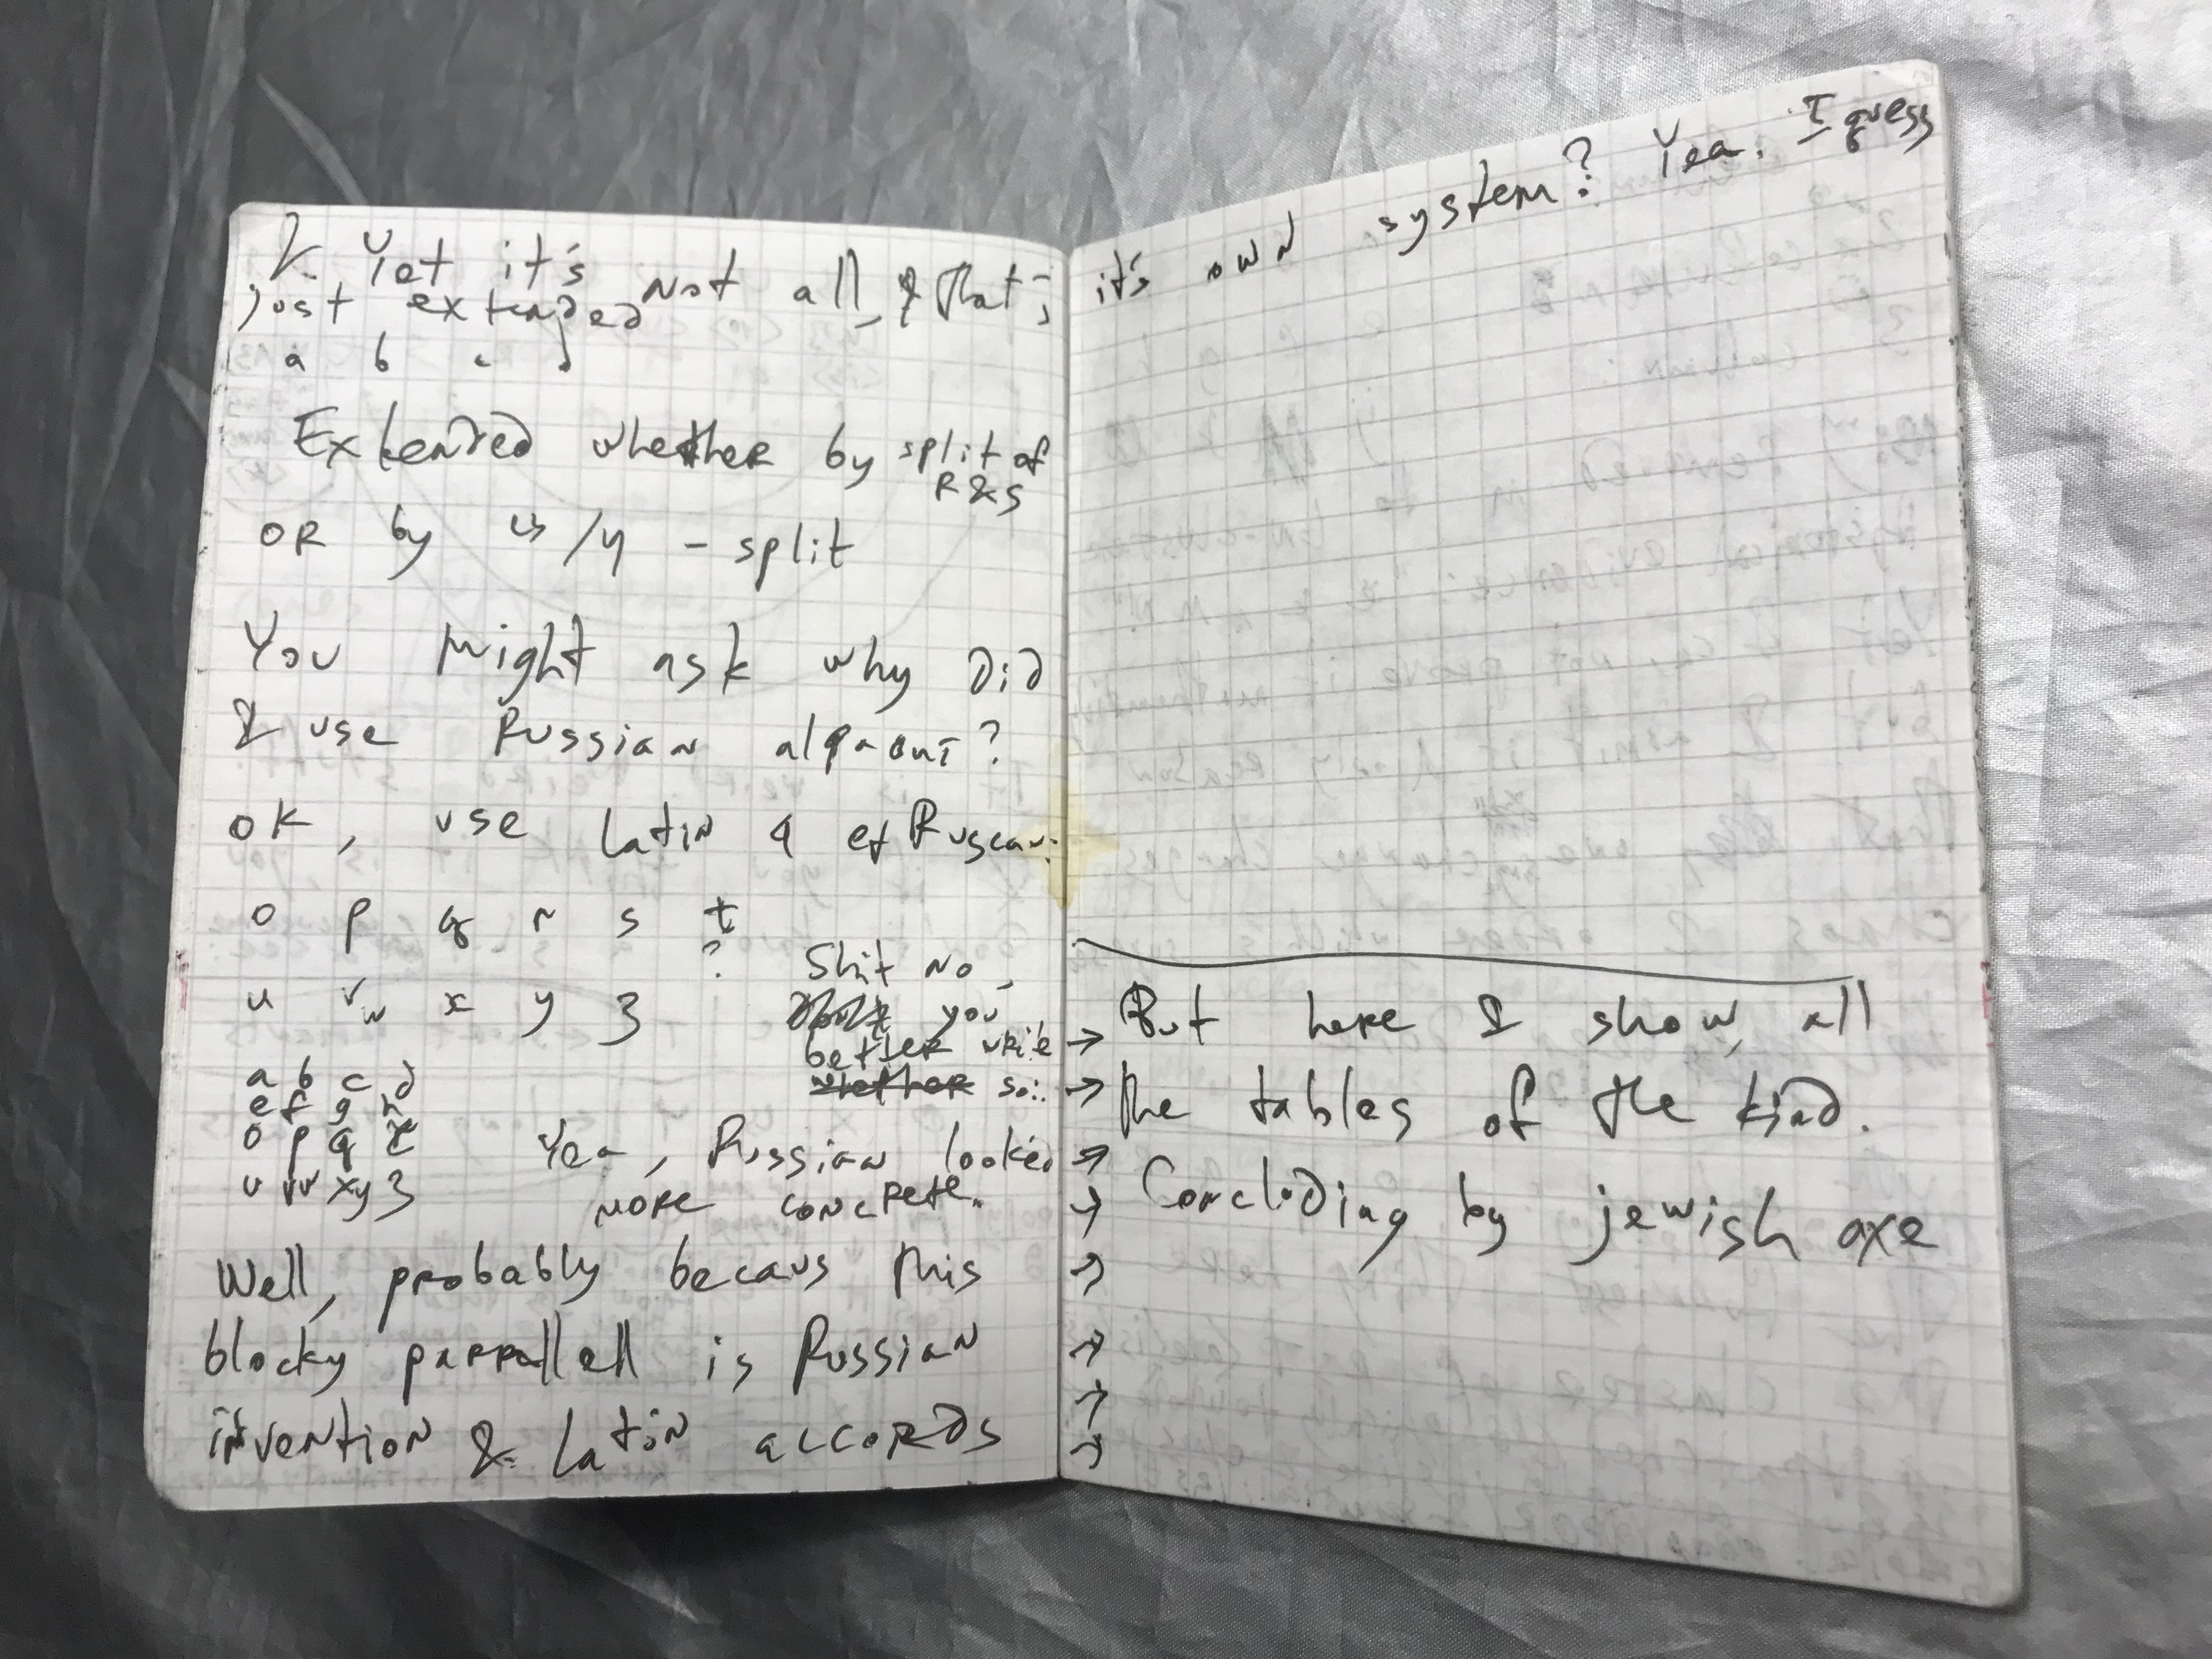 & Yat it's not all, & that's
just extended
a b c
Extended whether by split of
R & S
OR by u/y - split
You might ask why Did
I use Russian alpabut?
OK, use latin & etRuscan:
o p q r s t
u v w x y z
Shit no
better you
a b c d
e f g h
o p q
u v w x y z
Yea, Russian looked
more concrete.
Well, probably becaus this
blocky parallell is Russian
invention & latin accords
it's own system? Yea. I guess
→ But here I show, all
→ the tables of the kind.
→ Concluding by jewish axe